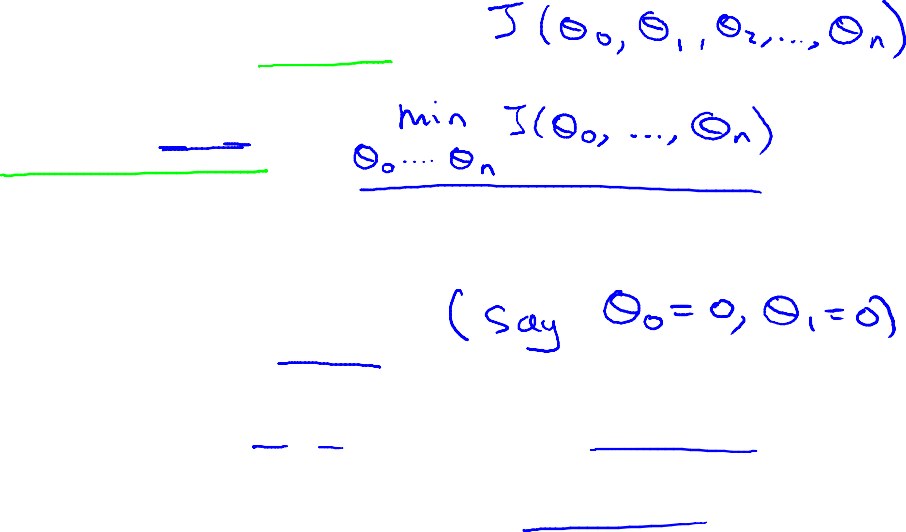 J(Θ₀, Θ₁, Θ₂, ..., Θₙ)
min J(Θ₀, ..., Θₙ)
Θ₀ .... Θₙ
(say Θ₀ = 0, Θ₁ = 0)